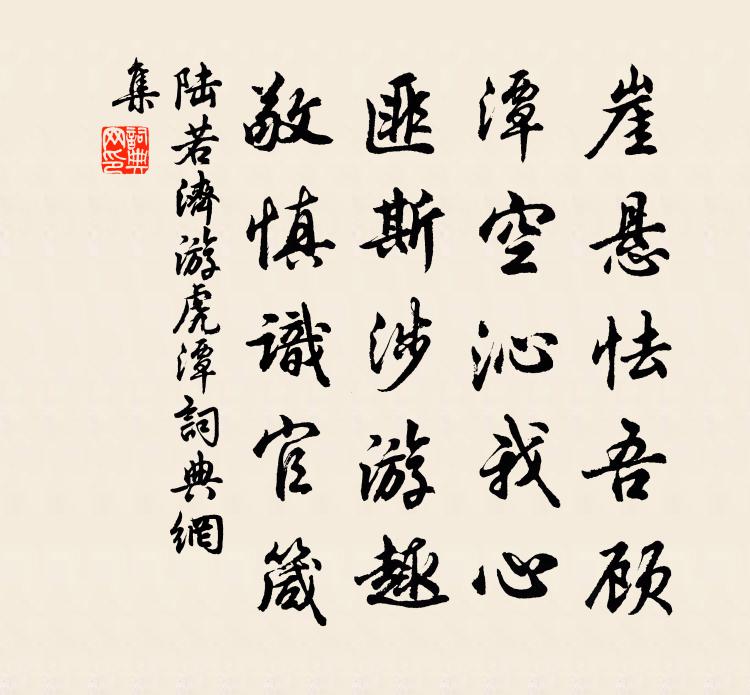 崖悬怯吾顾
潭空沁我心
匪斯涉游趣
敬慎識官箴
陆若濟游虎潭詞典網
集
詞典
网印